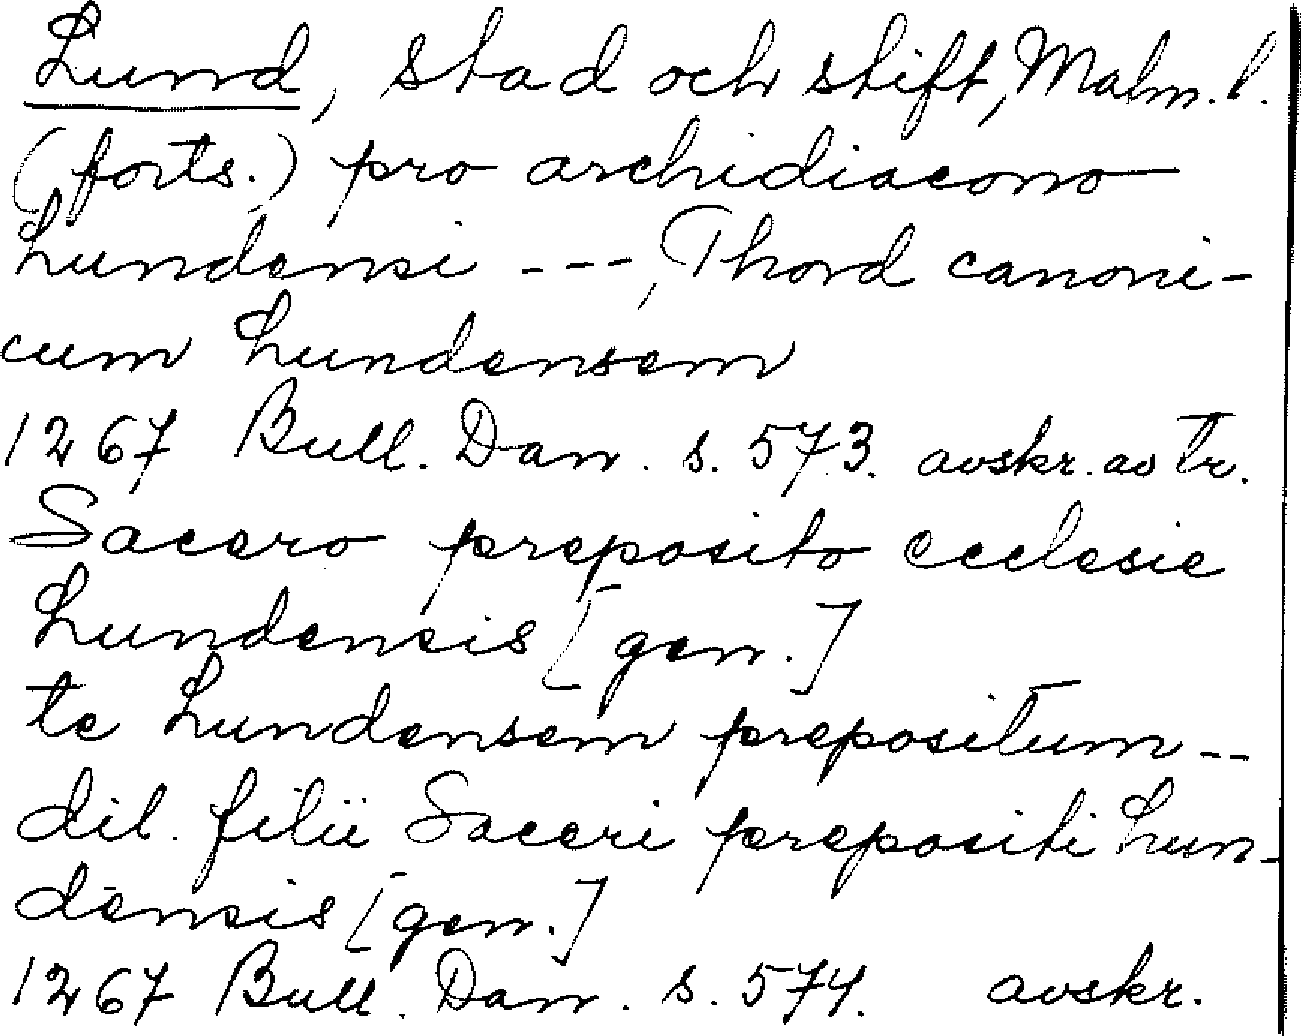 Lund, stad och stift, Malm. l.
(forts.) pro archidiacono
Lundensi ---, Thord canoni-
cum Lundensem
1267 Bull. Dan. s. 573. avskr. av tr.
Sacero preposito ecclesie
Lundensis [gen.]
te Lundensem prepositum --
dil. filii Saceri prepositi Lun-
densis [gen.]
1267 Bull. Dan. s. 574. avskr.